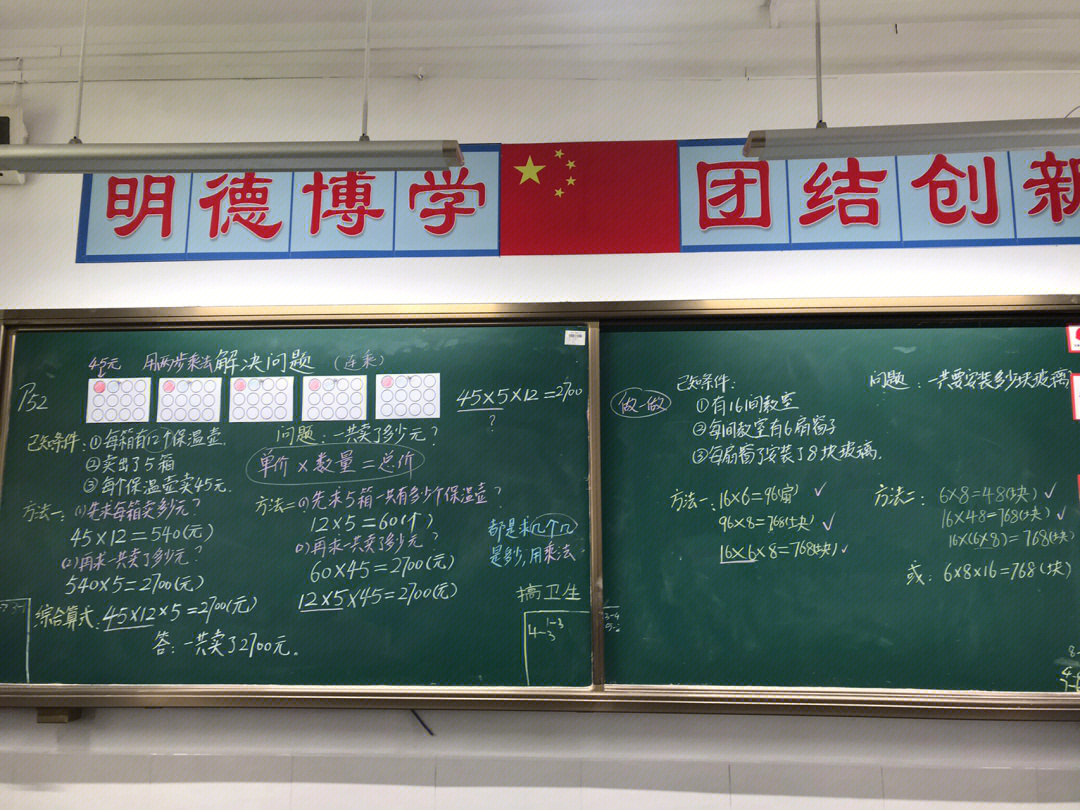 明德博学 团结创新
45元 用两步乘法解决问题 (连乘)
P52
45×5×12=2700
?
已知条件:①每箱有12个保温壶.
②卖出了5箱
③每个保温壶卖45元.
问题:一共卖了多少元?
单价×数量=总价
方法一:(1)先求每箱卖多少元?
45×12=540(元)
(2)再求一共卖了多少元?
540×5=2700(元)
综合算式:45×12×5=2700(元)
答:一共卖了2700元。
方法二:(1)先求5箱一共有多少个保温壶?
12×5=60(个)
(2)再求一共卖了多少元?
60×45=2700(元)
12×5×45=2700(元)
都是求几个几
是多少,用乘法
搞卫生
1-3
4-3
做一做
已知条件:
①有16间教室
②每间教室有6扇窗子
③每扇窗子安装了8块玻璃.
问题:一共要安装多少块玻璃
方法一:16×6=96(扇) ✓
96×8=768(块) ✓
16×6×8=768(块) ✓
方法二:6×8=48(块) ✓
16×48=768(块) ✓
16×(6×8)=768(块)
或:6×8×16=768(块)
3-4